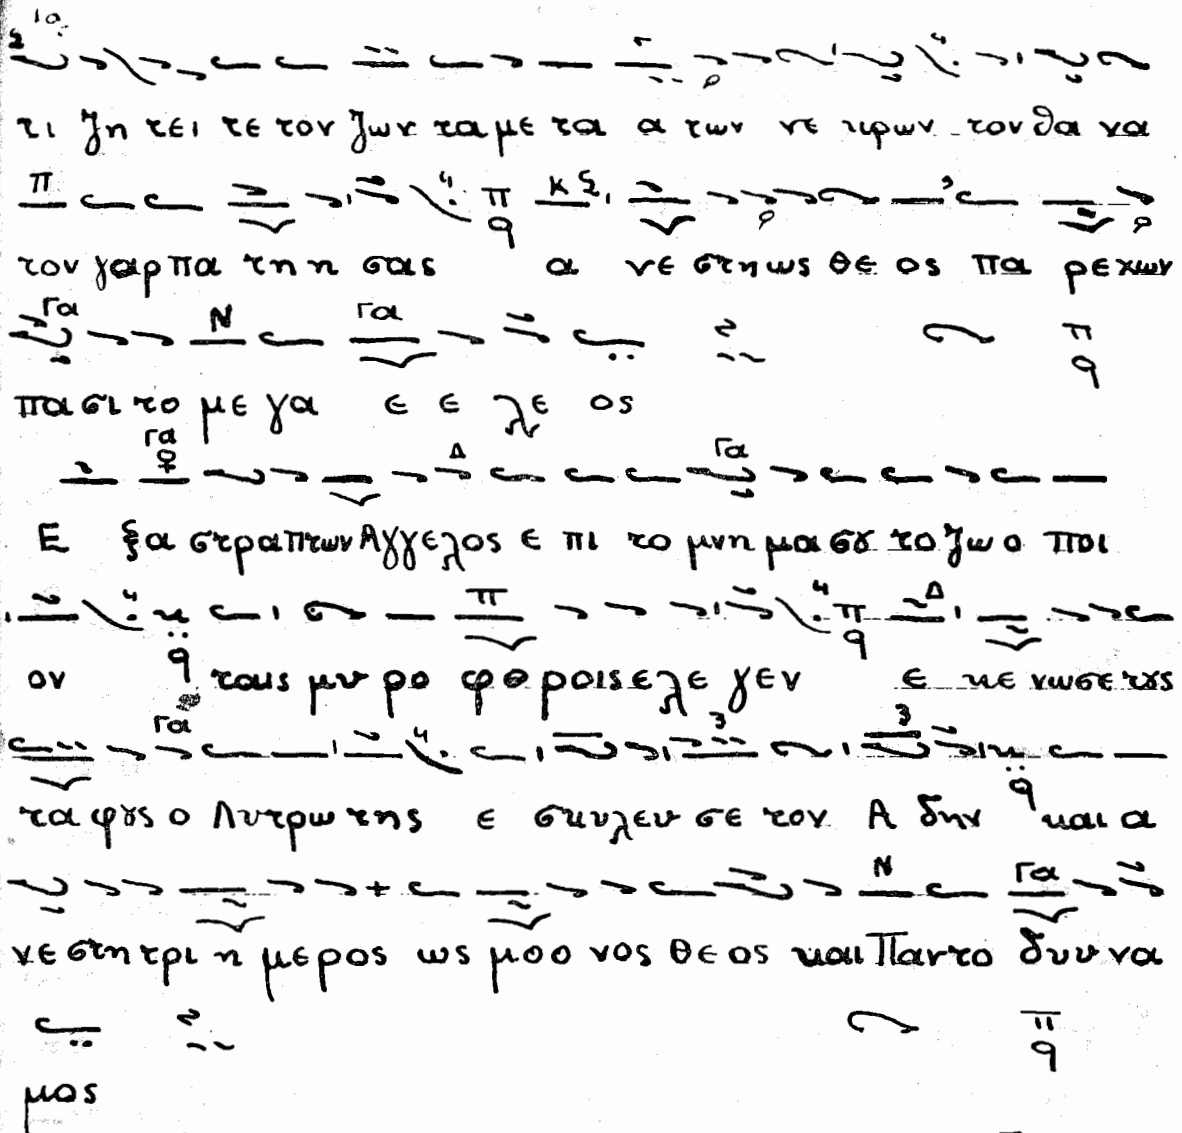 τι ζη τει τε τον ζων τα με τα α των νε κρων τον θα να
τον γαρ πα τη η σας α νε στη ως θε ος πα ρε χων
πα σι το με γα ε ε λε ος
Ε ξα στρα πτων Αγγελος ε πι το μνη μα σȣ το ζω ο ποι
ον τους μυ ρο φο ροις ε λε γεν ε κε νωσε τȣς
τα φȣς ο Λυτρω της ε σκυλευ σε τον Α δην και α
νε στη τρι η μερος ως μοο νος θε ος και Παντο δυυ να
μος